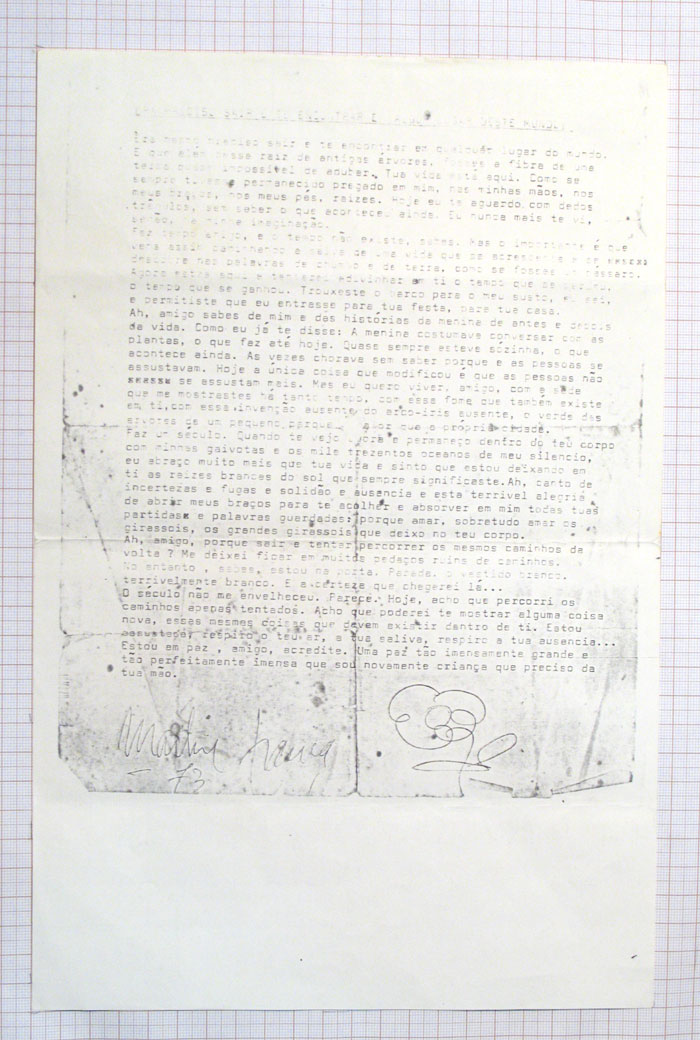 ENCONTRAR E LUGAR DESTE MUNDO
Era mesmo preciso sair e te encontrar em qualquer lugar do mundo.
E que além dessa raiz de antigas árvores, fosses a fibra de uma
terra quase impossível de adubar. Tua vida está aqui. Como se
sempre tivesse permanecido pregado em mim, nas minhas mãos, nos
meus braços, nos meus pés, raízes. Hoje eu te aguardo com dedos
trêmulos, sem saber o que aconteceu ainda. Eu nunca mais te vi,
senão na minha imaginação.
Faz tempo amigo, e o tempo não existe, sabes. Mas o importante é que
vens assim caminhando a de uma vida que se acrescenta e se
descobre nas palavras de chumbo e de terra, como se fosses um pássaro.
Agora estás aqui e tentarei adivinhar em ti o tempo que se perdeu,
o tempo que se ganhou. Trouxeste o barco para o meu susto, eu sei,
e permitiste que eu entrasse para tua festa, para tua casa.
Ah, amigo sabes de mim e das histórias da menina de antes e depois
da vida. Como eu já te disse: A menina costumava conversar com as
plantas, o que faz até hoje. Quase sempre esteve sòzinha, o que
acontece ainda. As vezes chorava sem saber porque e as pessoas se
assustavam. Hoje a única coisa que modificou é que as pessoas não
se assustam mais. Mas eu quero viver, amigo, com a sede
que me mostrastes há tanto tempo, com essa fome que também existe
em ti,com essa invenção ausente do arco-iris ausente, o verde das
árvores de um pequeno parque maior que a própria cidade.
Faz um século. Quando te vejo agora e permaneço dentro do teu corpo
com minhas gaivotas e os mile trezentos oceanos de meu silencio,
eu abraço muito mais que tua vida e sinto que estou deixando em
ti as raízes brancas do sol que sempre significaste.Ah, canto de
incertezas e fugas e solidão e ausencia e esta terrivel alegria
de abrir meus braços para te acolher e absorver em mim todas tuas
partidas e palavras guardadas: porque amar, sobretudo amar os
girassois, os grandes girassois que deixo no teu corpo.
Ah, amigo, porque sair e tentar percorrer os mesmos caminhos da
volta ? Me deixei ficar em muitos pedaços ruins de caminhos.
No entanto , sabes, estou na porta. Parada. O vestido branco,
terrivelmente branco. E a certeza que chegarei lá...
O século não me envelheceu. Parece. Hoje, acho que percorri os
caminhos apenas tentados. Acho que poderei te mostrar alguma coisa
nova, essas mesmas coisas que devem existir dentro de ti. Estou
assustada, respiro o teu ar, a tua saliva, respiro a tua ausencia...
Estou em paz , amigo, acredite. Uma paz tão imensamente grande e
tão perfeitamente imensa que sou novamente criança que preciso da
tua mão.
73